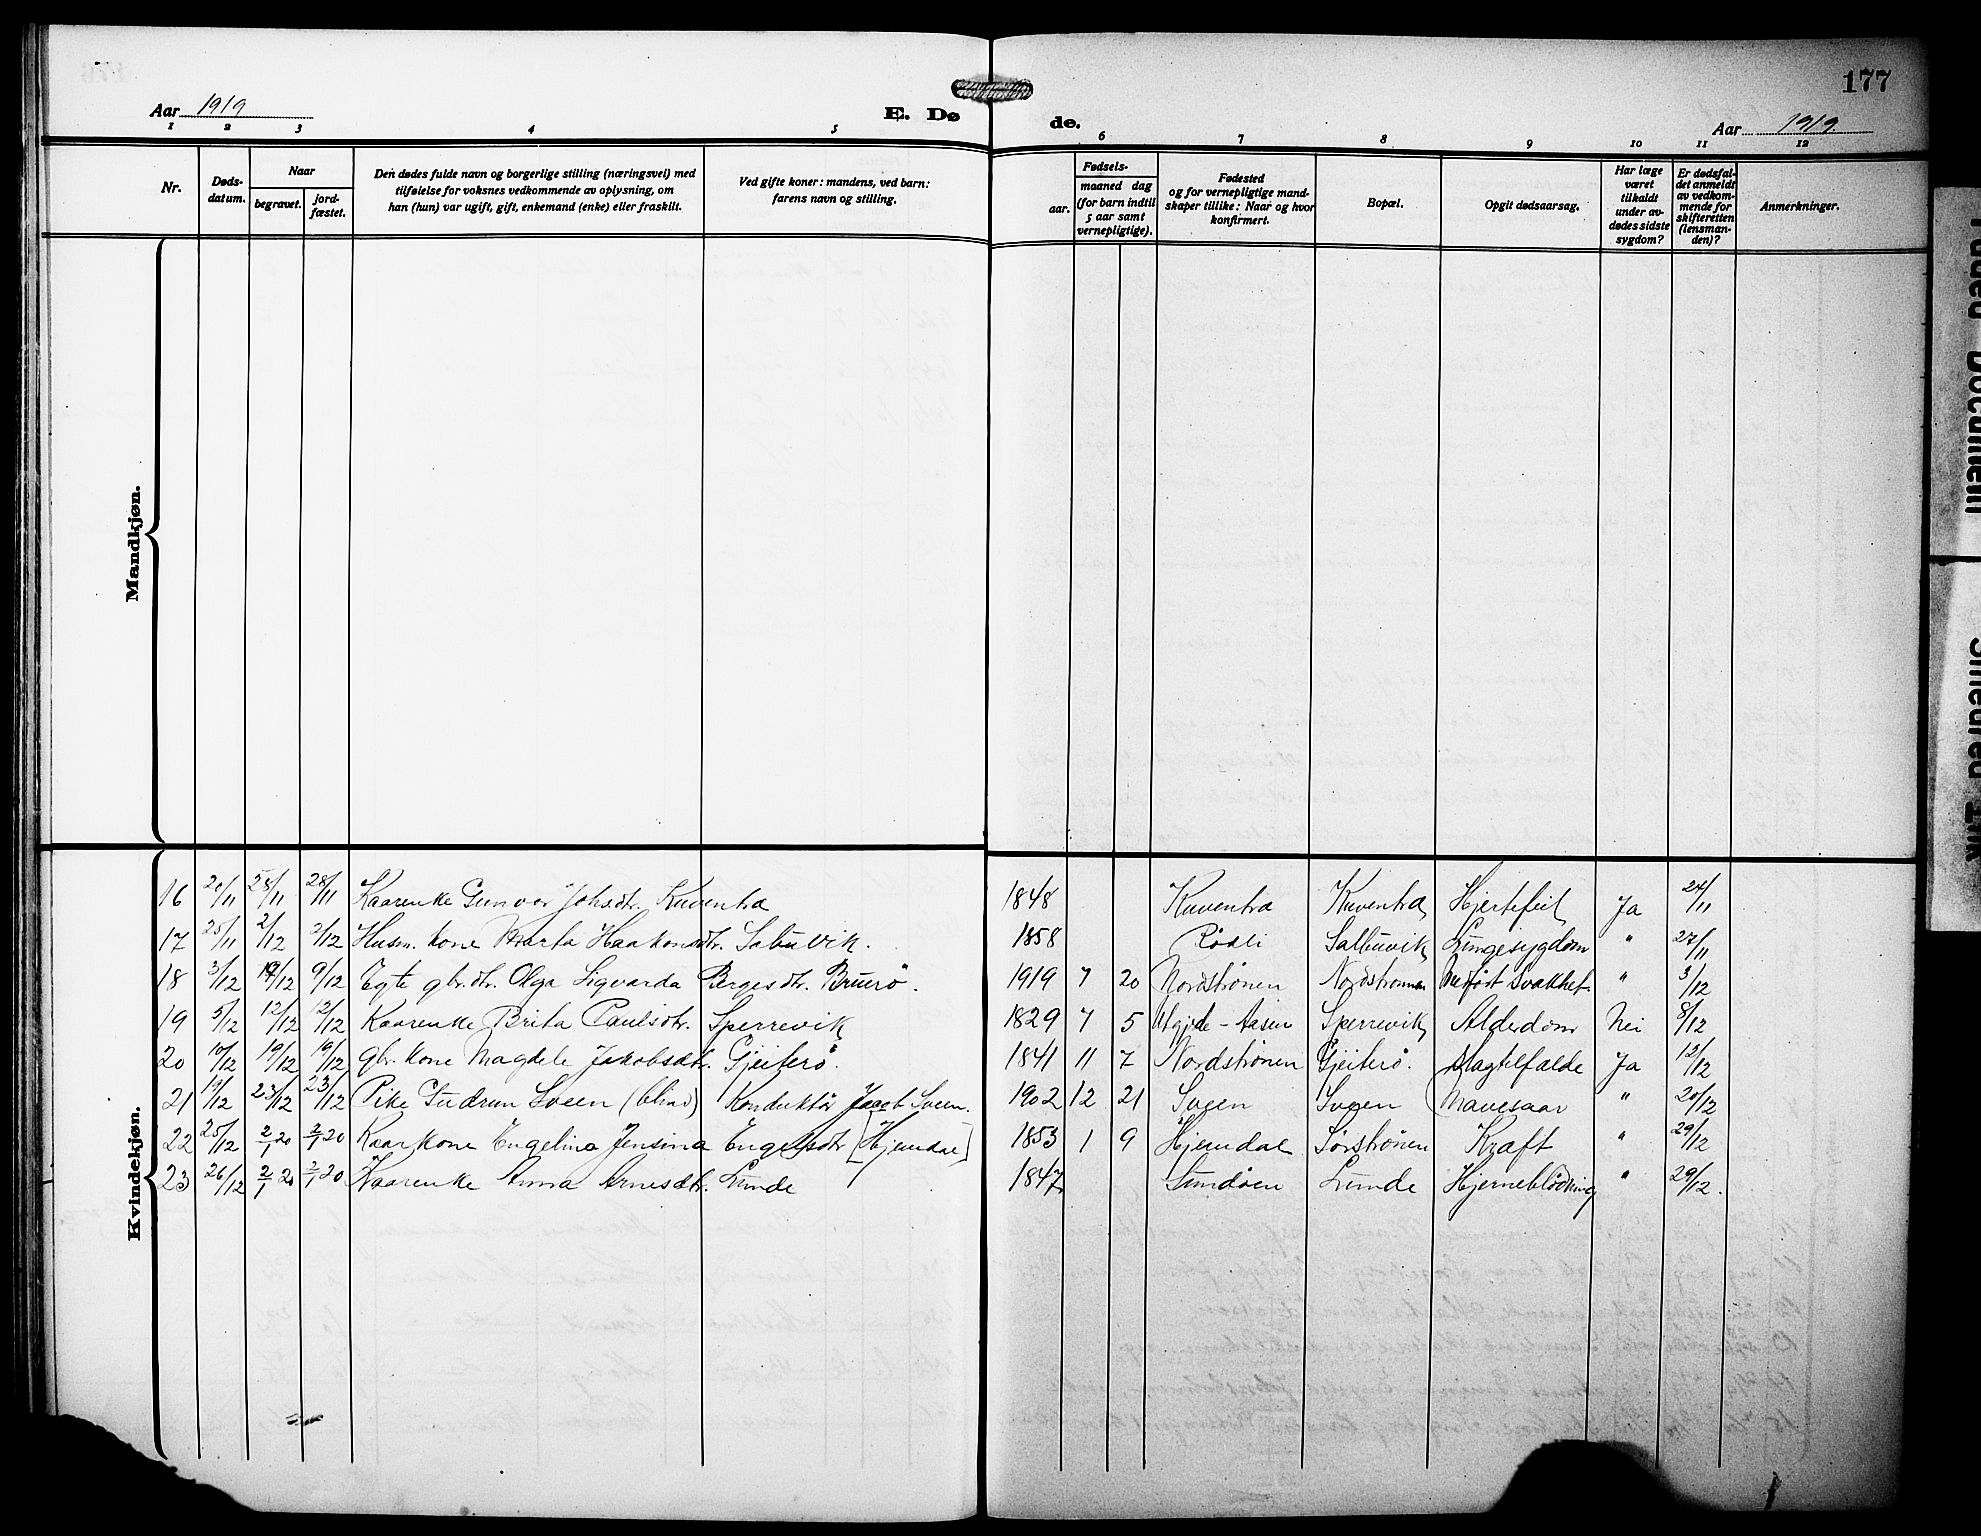 177
Aar 1919 E. Døde. Aar 1919
1 2 3 4 5 6 7 8 9 10 11 12
Nr.
Døds-
datum.
Naar
begravet.
jord-
fæstet.
Den dødes fulde navn og borgerlige stilling (næringsvei) med
tilføielse for voksnes vedkommende av oplysning, om
han (hun) var ugift, gift, enkemand (enke) eller fraskilt.
Ved gifte koner: mandens, ved barn:
farens navn og stilling.
Fødsels-
aar.
maaned dag
(for barn indtil
5 aar samt
vernepligtige).
Fødested
og for vernepligtige mand-
skaper tillike: Naar og hvor
konfirmert.
Bopæl.
Opgit dødsaarsag.
Har læge
været
tilkaldt
under av-
dødes sidste
sygdom?
Er dødsfal-
det anmeldt
av vedkom-
mende for
skifteretten
(lensman-
den)?
Anmerkninger.
Mandkjøn.
Kvindekjøn.
16 20/11 28/11 28/11 Kaarenke Gunvor Johsdtr. Kuventræ 1848 Kuventræ Kuventræ Hjertefeil Ja 24/11
17 25/11 2/12 2/12 Husm. kone Marta Haakonsdtr. Salbuvik. 1858 Rødli Salbuvik Lungesygdom " 27/11
18 3/12 9/12 9/12 Egte gbr.dtr. Olga Sigvarda Bergesdtr. Bruerö. 1919 7 20 Nordstrønen Nordstrønen Medfört svakhet " 3/12
19 5/12 12/12 12/12 Kaarenke Brita Paulsdtr. Sperrevik 1829 7 5 Utgjrde-Aasen Sperrevik Alderdom Nei 8/12
20 10/12 19/12 19/12 Gbr. kone Magdele Jakobsdtr. Gjeiterö. 1841 11 7 Nordstrønen Gjeiterö. Slagtilfælde Ja 12/12
21 19/12 23/12 23/12 Pike Gudrun Sveen (blind) Konduktör Jacob Sveen. 1902 12 21 Sveen Sveen Mavesaar " 20/12
22 25/12 2/1 20 2/1 20 Kaarkone Engelina Jensina Engelsdtr [Hjemdal] 1853 1 9 Hjemdal Sørstrønen Kræft " 29/12
23 26/12 2/1 20 2/1 20 Kaarenke Anna Arnesdtr. Lunde 1847 Sundöen Lunde Hjerneblödning " 29/12.